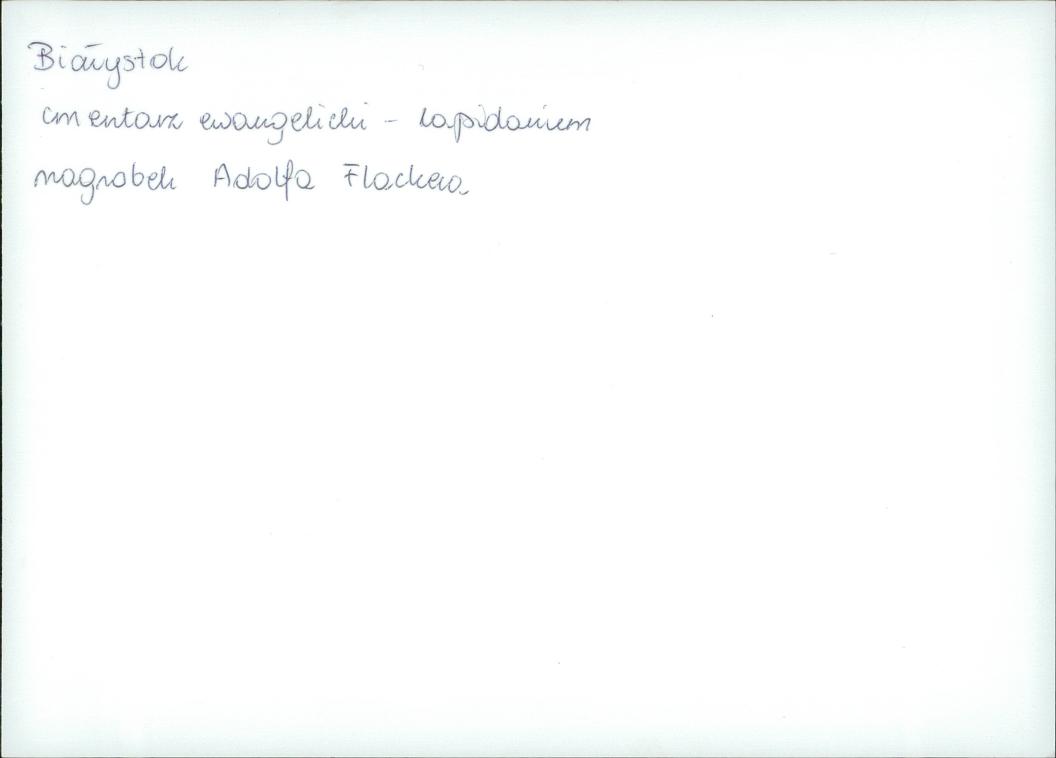 Białystok
cmentarz ewangelicki - lapidarium
nagrobek Adolfa Flackera